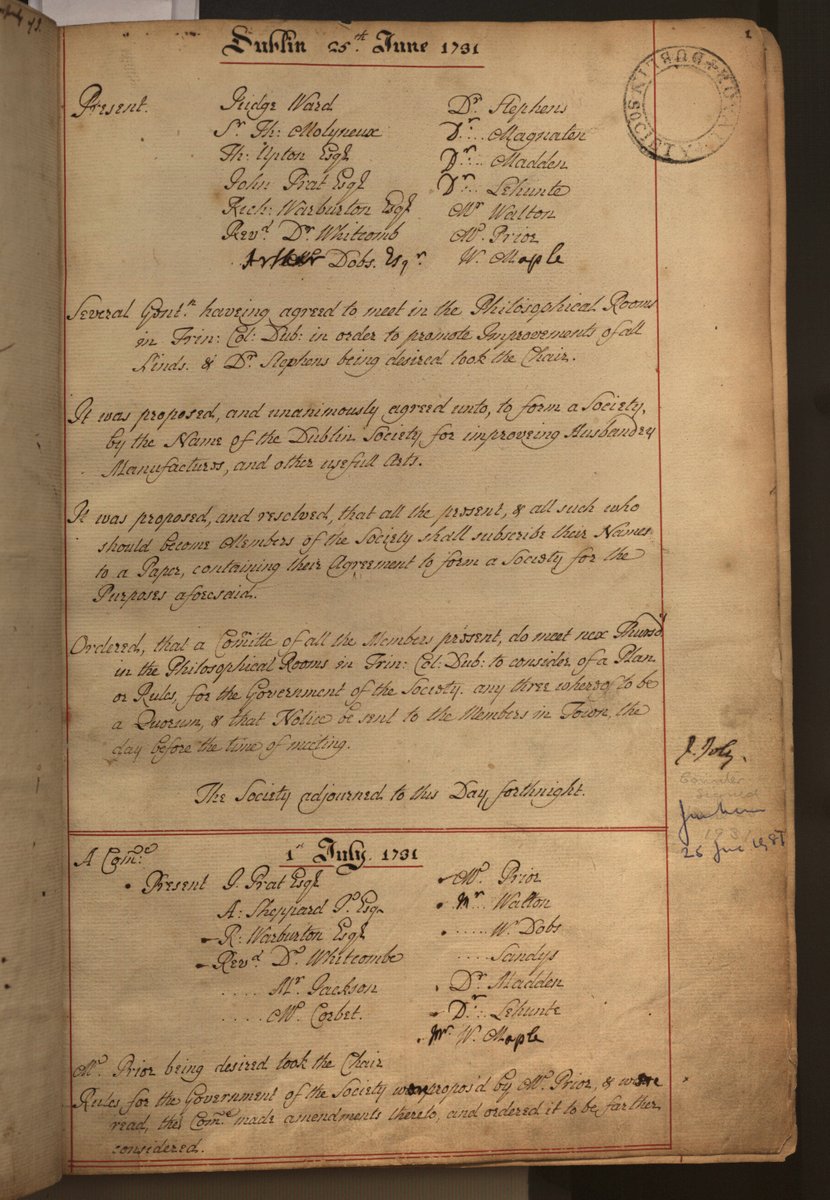 Dublin 25th June 1731
1
Present. Judge Ward Dr Stephens
Sr Th: Molyneux Dr... Magnaten
Th: Upton Esqr Dr... Madden
John Prat Esqr Dr... Lehunte
Rich: Warburton Esqr Mr Walton
Revd Dr Whitcomb Mr Prior
Arthur Dobs. Esqr W. Maple
Several Gentn haveing agreed to meet in the Philosophical Rooms
in Trin: Col: Dub: in order to promote Improvements of all
kinds. & Dr Stephens being desired took the Chair.
It was proposed, and unanimously agreed unto, to form a Society,
by the Name of the Dublin Society, for improveing Husbandry
Manufactures, and other usefull Arts.
It was proposed, and resolved, that all the present, & all such who
should become Members of the Society shall subscribe their Names
to a Paper, containing their Agreement to form a Society for the
Purposes aforesaid.
Ordered, that a Comittee of all the Members present, do meet next Thursdy
in the Philosophical Rooms in Trin: Col: Dub: to consider of a Plan
or Rules, for the Government of the Society. any three whereof to be
a Quorum, & that Notice be sent to the Members in Town, the
day before the time of meeting.
The Society adjourned to this Day forthnight.
J. Joly.
Counter
signed
1931
25 June 1981
A Come 1st July. 1731
Present J. Prat Esqr Mr Prior
A: Sheppard Jr Esqr Mr Walton
R: Warburton Esqr W. Dobs
Revd Dr Whitcombe ..... Sandys
..... Mr Jackson Dr Madden
..... Mr Corbet. Dr. Lehunte
Mr W. Maple
Mr Prior being desired took the Chair
Rules for the Government of the Society were propos'd by Mr Prior, & were
read, the Come made amendments thereto, and ordered it to be farther
considered.
ROYAL DUBLIN SOCIETY